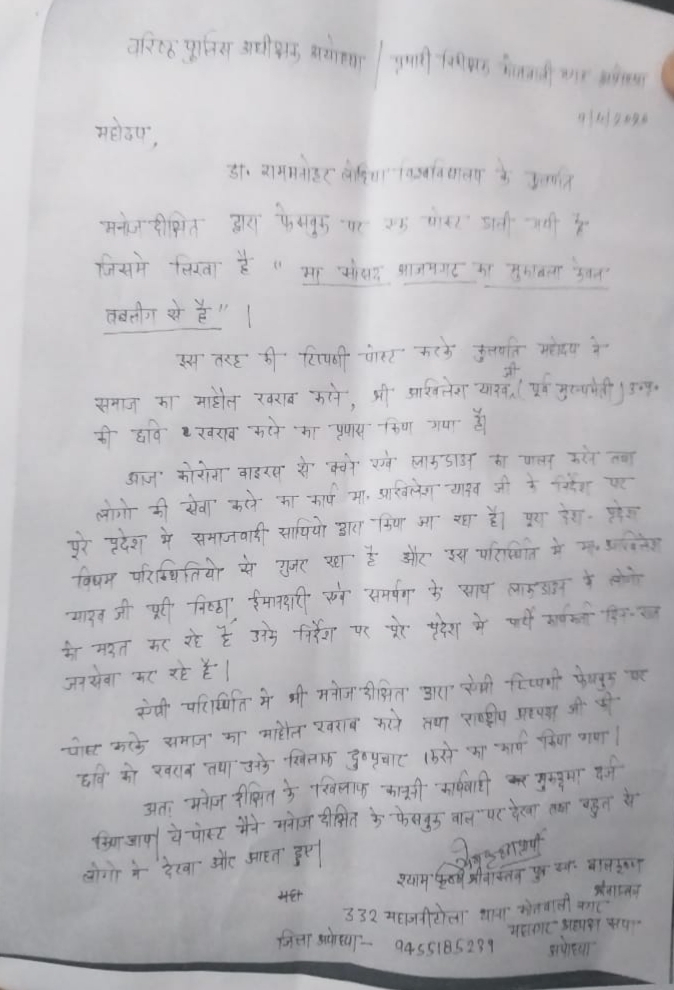 वरिष्ठ पुलिस अधीक्षक अयोध्या / प्रभारी निरीक्षक कोतवाली नगर अयोध्या
महोदय,
डा. राममनोहर लोहिया विश्वविद्यालय के कुलपति
मनोज दीक्षित द्वारा फेसबुक पर एक पोस्ट डाली गयी है
जिसमे लिखा है " मा सांसद आजमगढ़ का मुकाबला केवल
तबलीग से है" |
इस तरह की टिप्पणी पोस्ट करके कुलपति महोदय ने
समाज का माहौल खराब करने, श्री अखिलेश यादव जी (पूर्व मुख्यमंत्री) उ०प्र०
की छवि खराब करने का प्रयास किया गया है|
आज कोरोना वाइरस से बचने एवं लाकडाउन का पालन करने तथा
लोगो की सेवा करने का कार्य मा. अखिलेश यादव जी के निर्देश पर
पूरे प्रदेश मे समाजवादी साथियो द्वारा किया जा रहा है| पूरा देश-प्रदेश
विषम परिस्थितियो से गुजर रहा है और इस परिस्थिति मे मा. अखिलेश
यादव जी पूरी निष्ठा, ईमानदारी एवं समर्पण के साथ लाकडाउन मे लोगो
की मदत कर रहे है, उनके निर्देश पर पूरे प्रदेश मे पार्टी कार्यकर्ता दिन-रात
जनसेवा कर रहे है|
ऐसी परिस्थिति मे श्री मनोज दीक्षित द्वारा ऐसी टिप्पणी फेसबुक पर
पोस्ट करके समाज का माहौल खराब करने तथा राष्ट्रीय अध्यक्ष जी की
छवि को खराब तथा उनके खिलाफ दुष्प्रचार करने का कार्य किया गया|
अतः मनोज दीक्षित के खिलाफ कानूनी कार्यवाही कर मुकदमा दर्ज
किया जाए| ये पोस्ट मैने मनोज दीक्षित के फेसबुक वाल पर देखा तथा बहुत से
लोगो ने देखा और आहत हुए|
श्याम कृष्ण श्रीवास्तव पुत्र स्व. बालकृष्ण
श्रीवास्तव
332 महाजनीटोला थाना कोतवाली नगर
महानगर अध्यक्ष सपा
जिला अयोध्या- 9455185239 अयोध्या